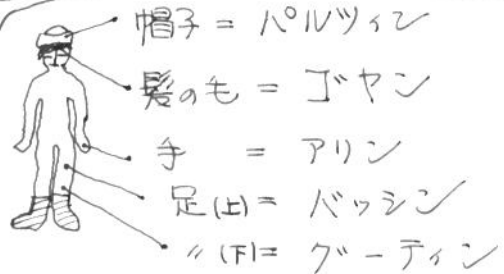 帽子 = パルツィン
髪のも = ゴヤン
手 = アリン
足(上) = バッシン
〃(下) = グーティン